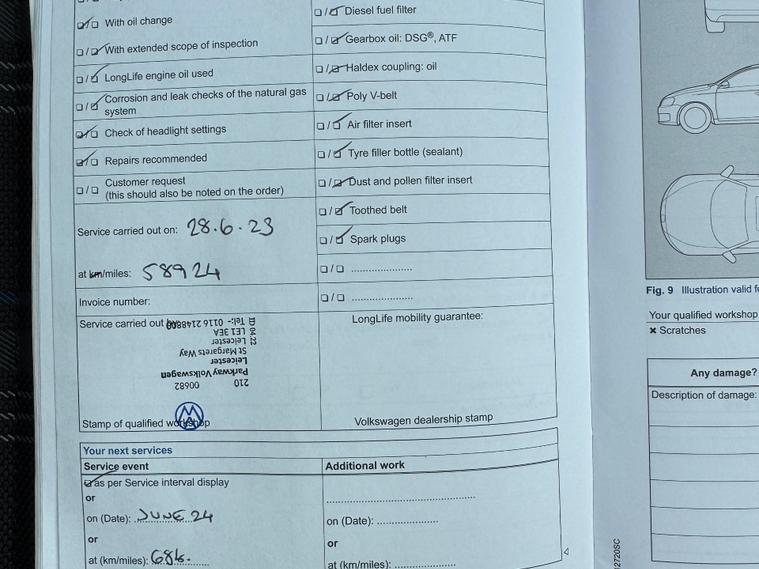 ❏/❏ With oil change
❏/❏ With extended scope of inspection
❏/❏ LongLife engine oil used
❏/❏ Corrosion and leak checks of the natural gas
system
❏/❏ Check of headlight settings
❏/❏ Repairs recommended
❏/❏ Customer request
(this should also be noted on the order)
Service carried out on: 28.6.23
at km/miles: 58924
Invoice number:
Service carried out by:
Tel:- 0116 2148800
LE1 3EA
Leicester
St Margarets Way
Leicester
Parkway Volkswagen
210 00682
Stamp of qualified workshop
❏/❏ Diesel fuel filter
❏/❏ Gearbox oil: DSG®, ATF
❏/❏ Haldex coupling: oil
❏/❏ Poly V-belt
❏/❏ Air filter insert
❏/❏ Tyre filler bottle (sealant)
❏/❏ Dust and pollen filter insert
❏/❏ Toothed belt
❏/❏ Spark plugs
❏/❏ ....................
❏/❏ ....................
LongLife mobility guarantee:
Volkswagen dealership stamp
Your next services
Service event
as per Service interval display
or
on (Date): JUNE 24
or
at (km/miles): 68k.
Additional work
on (Date): ....................
or
at (km/miles): ....................
Fig. 9 Illustration valid
Your qualified workshop
✖ Scratches
Any damage?
Description of damage:
12720SC